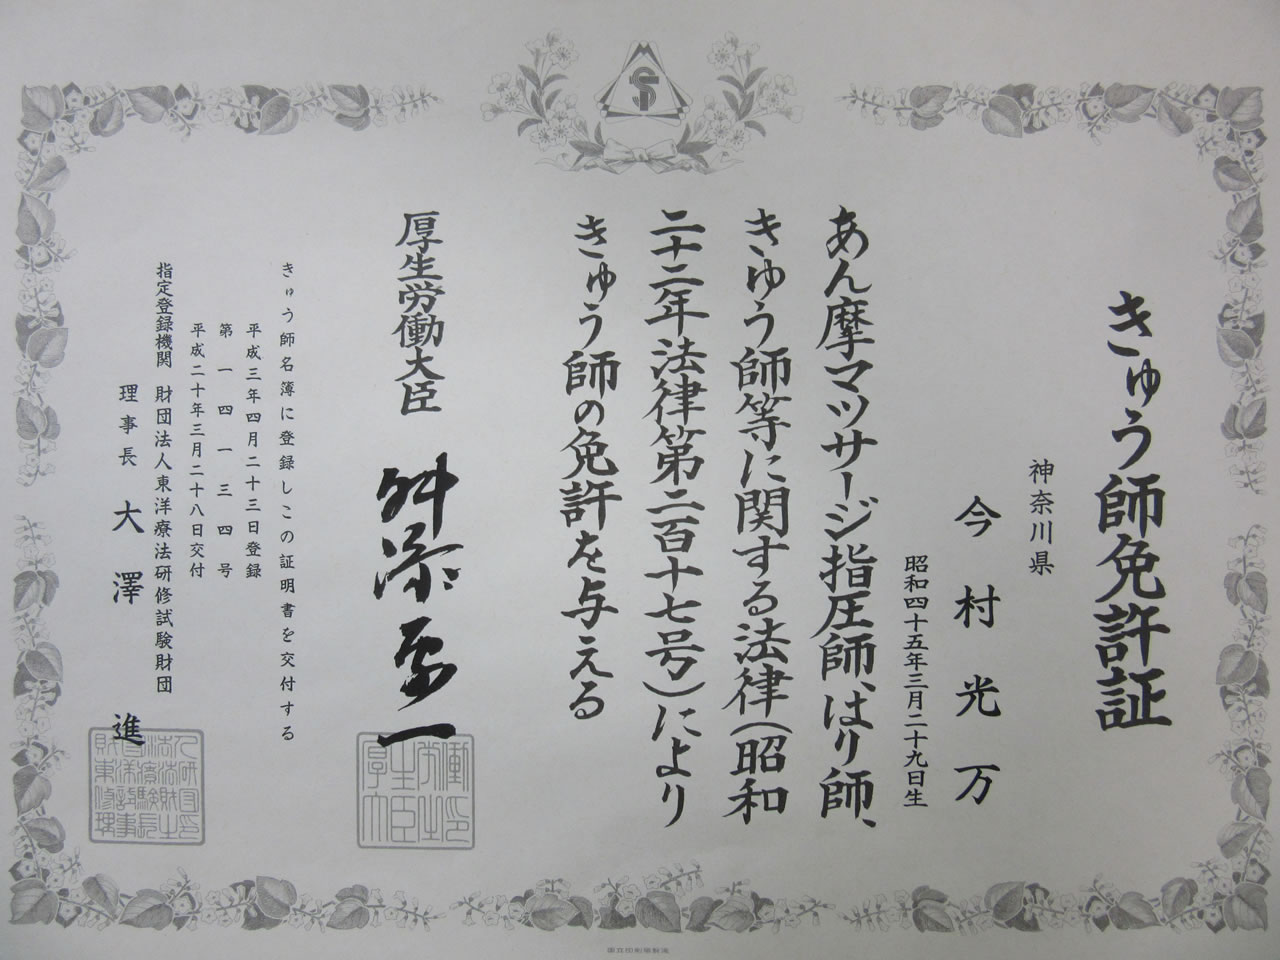 きゅう師免許証
神奈川県
今村光万
昭和四十五年三月二十九日生
あん摩マツサージ指圧師、はり師、
きゆう師等に関する法律(昭和
二十二年法律第二百十七号)により
きゅう師の免許を与える
厚生労働大臣 舛添要一
きゅう師名簿に登録しこの証明書を交付する
平成三年四月二十三日登録
第一四一三四号
平成二十年三月二十八日交付
指定登録機関 財団法人東洋療法研修試験財団
理事長 大澤進